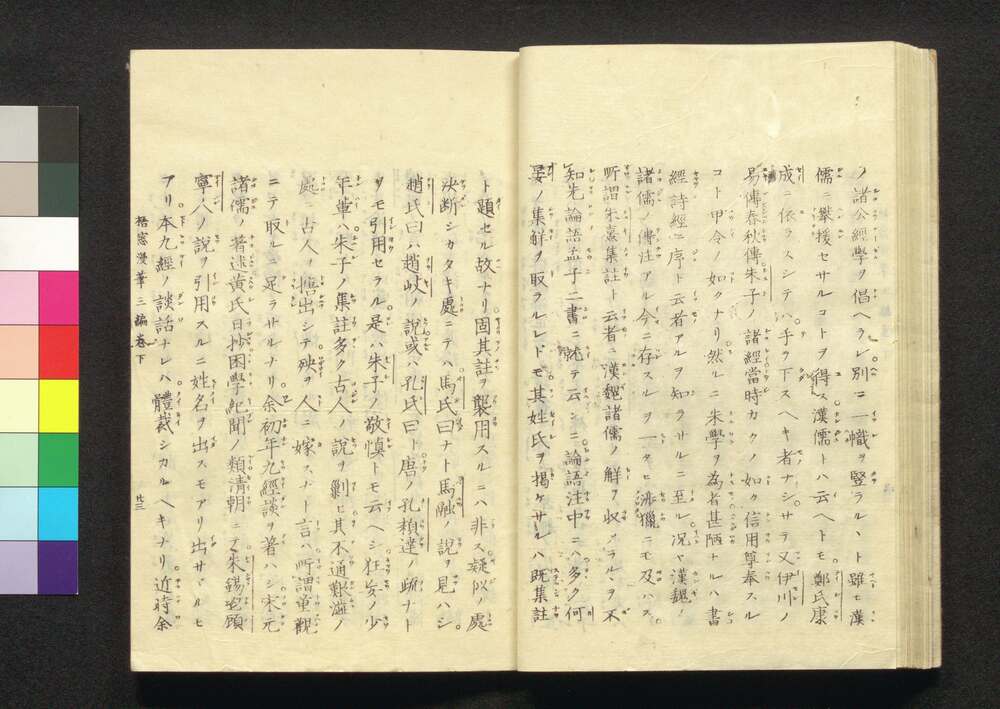 ノ諸公經學ヲ倡ヘラレ別ニ一幟ヲ竪ラルヽト雖モ漢
儒ニ攀援セサルコトヲ得ス漢儒トハ云ヘトモ鄭氏康
成ニ依ラスシテハ手ヲ下スヘキ者ナシサラ又伊川ノ
易傳春秋傳朱子ノ諸經當時カクノ如ク信用尊奉スル
コト甲令ノ如クナリ然ルニ朱學ヲ為者甚陋ナルハ書
經詩經ニ序ト云者アルヲ知ラサルニ至ル况ヤ漢魏ノ
諸儒ノ傳注アル今ニ存スルヲ一タヒ涉獵ニモ及ハス
所謂朱熹集註ト云者ニ漢魏諸儒ノ解ヲ收メラルヽヲ不
知先論語孟子二書ニ就テ云ンニ論語注中ニハ多ク何
晏ノ集解ヲ取ラルレドモ其姓氏ヲ掲ケサルハ既集註
ト題セル故ナリ固其註ヲ襲用スルニハ非ス疑似ノ處
決斷シカタキ處ニテハ馬氏曰ナト馬融ノ説ヲ見ハシ
趙氏曰ハ趙岐ノ説或ハ孔氏曰ト唐ノ孔穎達ノ疏ナト
ヲモ引用セラル是ハ朱子ノ敬慎トモ云ヘシ狂妄ノ少
年輩ハ朱子ノ集註多ク古人ノ説ヲ剿ヒ其不通艱澁ノ
處ハ古人ヲ擔出シテ殃ヲ人ニ嫁スナト言ハ所謂童觀
ニテ取ルニ足ラサルナリ余初年九經談ヲ著ハシ宋元
諸儒ノ著述黄氏日抄困學紀聞ノ類清朝ニテ朱錫鬯顧
寧人ノ説ヲ引用スルニ姓名ヲ出スモアリ出サヾルヒ
アリ本九經ノ談話ナレハ體裁シカルヘキナリ近時余
梧窓漫筆三編卷下
廿三